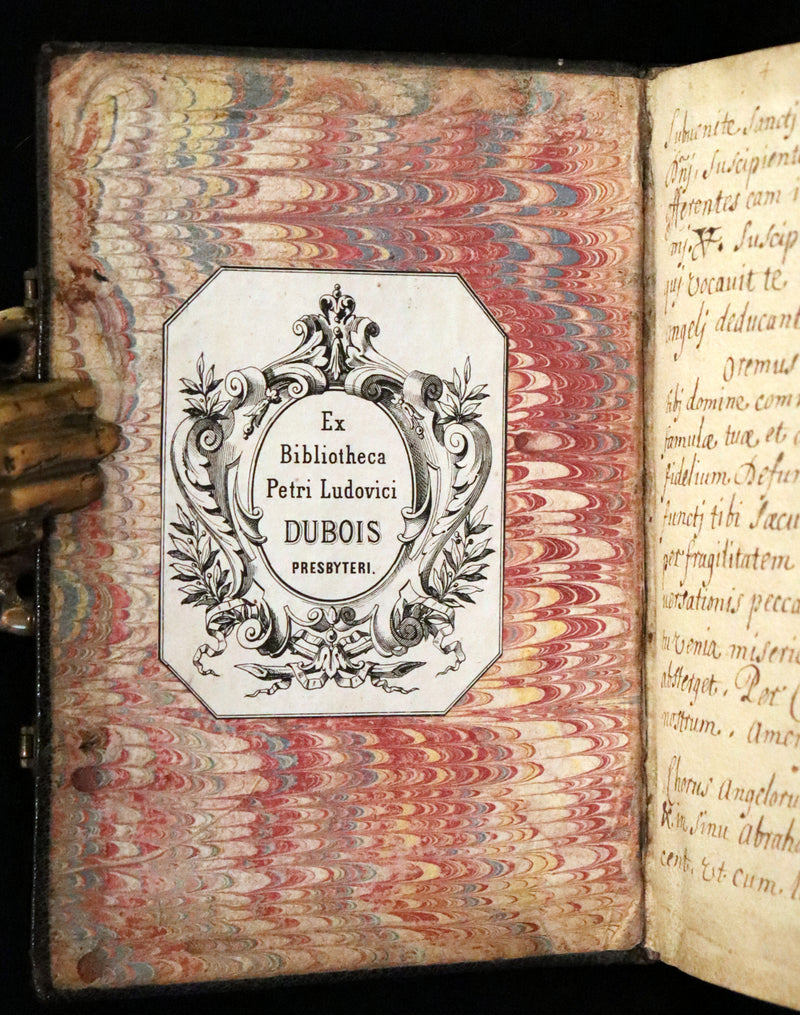 Ex
Bibliotheca
Petri Ludovici
DUBOIS
PRESBYTERI.
4
Subuenite Sanctj
Dñj, Suscipient
offerentes eam i
nj. ℣. Suscip
quj vocauit te
angelj deducant
Oremus
tibj domine com
famulæ tuæ et
fidelium Defun
functj tibj Sæcu
per fragilitatem
uersationis pecca
tu venia miseric
absterget. Per C
nostrum. Amen
Chorus Angeloru
& in sinu Abraha
cent. Et cum L